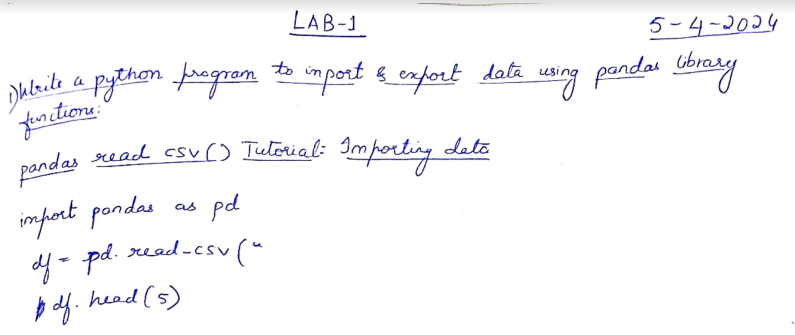 LAB-1 5-4-2024
1) Write a python program to import & export data using pandas library
functions:
pandas read csv() Tutorial: Importing data
import pandas as pd
df = pd. read-csv("
df. head(5)